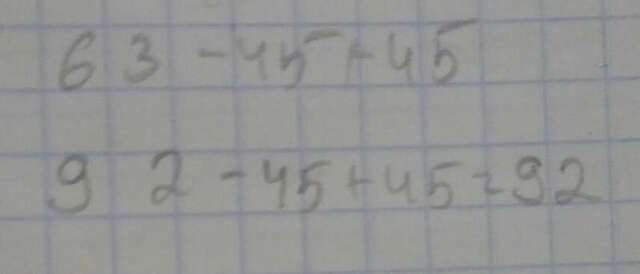 63-45+45
92-45+45=92